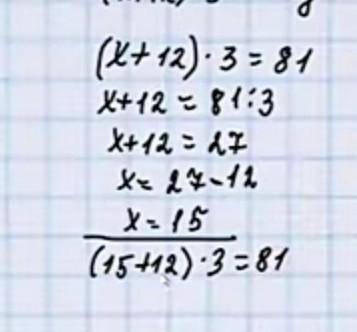 (x+12)·3=81
x+12=81:3
x+12=27
x=27-12
x=15
(15+12)·3=81